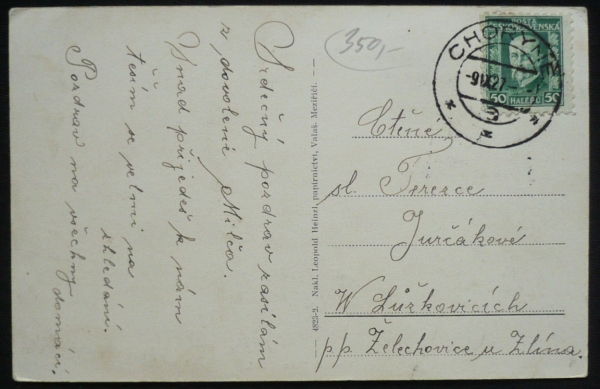 Srdečný pozdrav zasílám
z dovolené Milča.
Snad přijedeš k nám
těším se velmi na
shledání.
Pozdrav na všechny
domácí.
4825-2. Nakl. Leopold Heinzl, papírnictví, Valaš. Meziříčí.
350,-
POŠTA
ČESKOSLOVENSKÁ
50 HALÉŘŮ 50
Ctěné
sl. Terezce
Jurčákové
W Lůžkovicích
pp. Želechovice u Zlína.